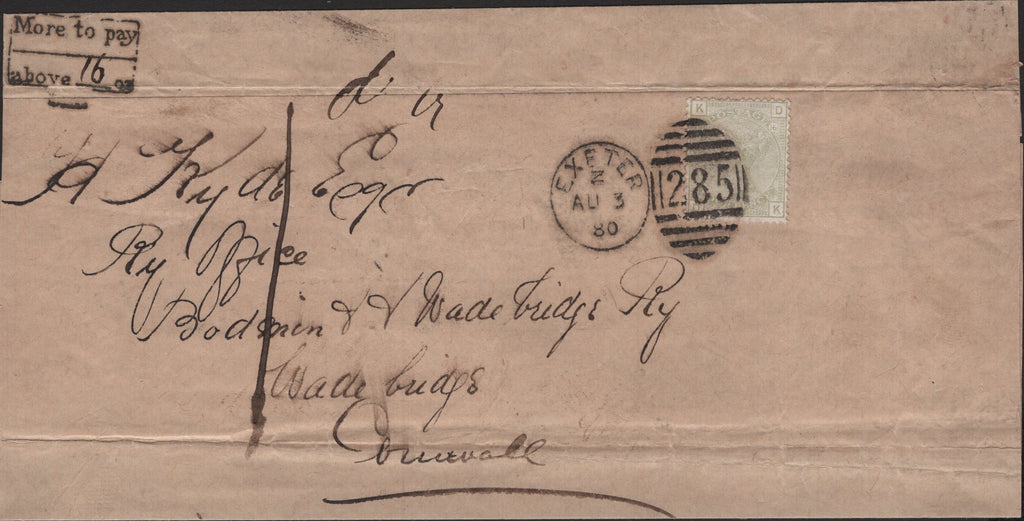 More to pay
above 16 oz
H Kyd Esqr
Ry Office
Bodmin & Wadebridge Ry
Wadebridge
Cornwall
EXETER
Z
AU 3
80
285
K D
K
POSTAGE